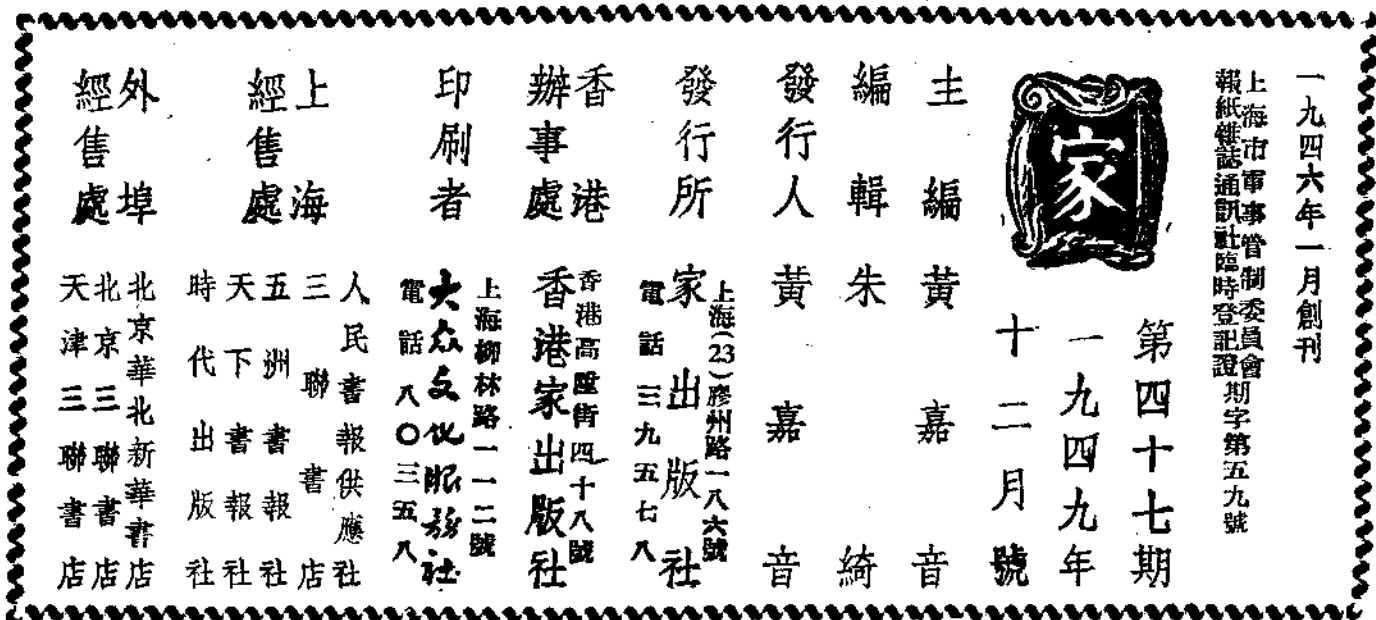 一九四六年一月創刊
上海市軍事管制委員會
報紙雜誌通訊社臨時登記證期字第五九號
家
第四十七期
一九四九年
十二月號
主編 黃嘉音
編輯 朱綺
發行人 黃嘉音
發行所
上海(23)膠州路一八六號
家出版社
電話 三九五七八
香港
辦事處
香港高陞街四十八號
香港家出版社
印刷者
上海柳林路一一二號
大众文化服務社
電話 八〇三五八
上海
經售處
人民書報供應社
三聯書店
五洲書報社
天下書報社
時代出版社
外埠
經售處
北京華北新華書店
北京三聯書店
天津三聯書店